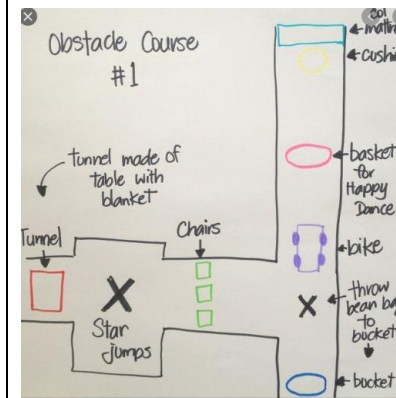 Obstacle Course
#1
tunnel made of
table with
blanket
Tunnel
Star
jumps
Chairs
cushi
basket
for
Happy
Dance
bike
throw
bean ba
to
bucket
bucket